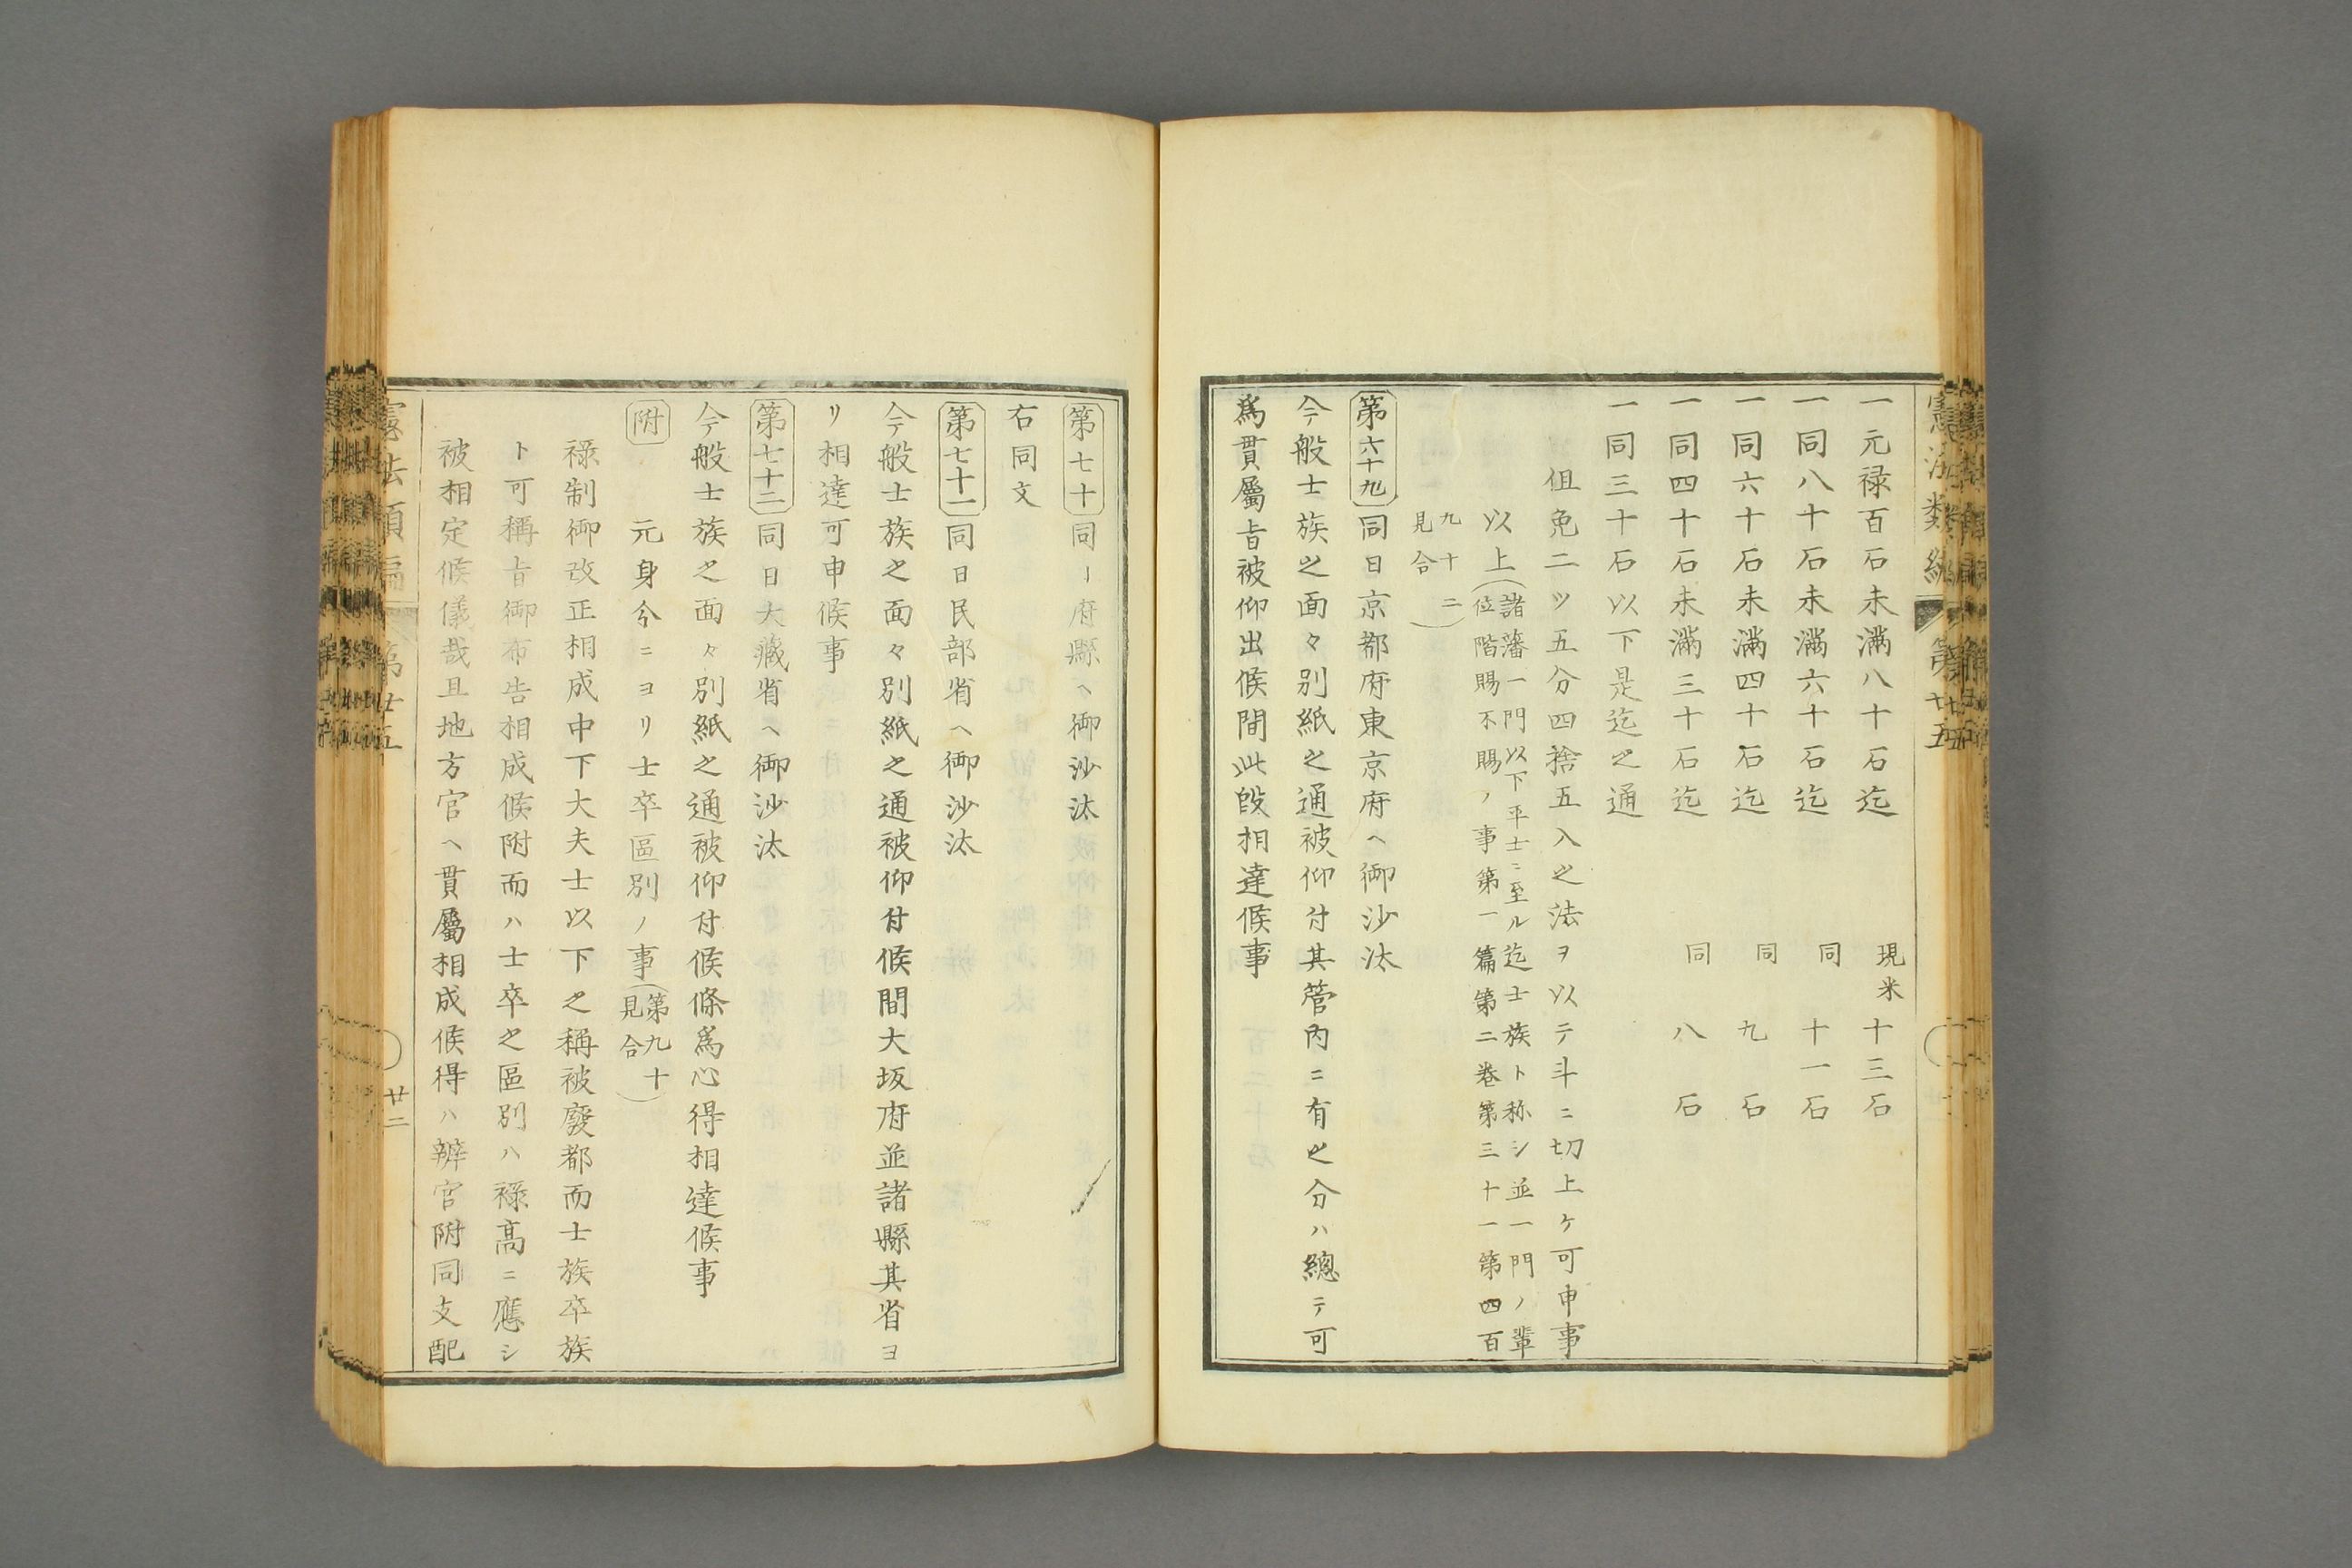 憲法類編 第廿五
一元禄百石未満八十石迄 現米 十三石
一同八十石未満六十石迄 同 十一石
一同六十石未満四十石迄 同 九石
一同四十石未満三十石迄 同 八石
一同三十石以下是迄之通
但免二ツ五分四捨五入之法ヲ以テ斗ニ切上ケ可申事
以上(諸藩一門以下平士ニ至ル迄士族ト称シ並一門ノ輩
位階賜不賜ノ事第一篇第二巻第三十一第四百
九十二
見合)
第六十九 同日京都府東京府ヘ御沙汰
今般士族之面々別紙之通被仰付其管内ニ有之分ハ總テ可
為貫屬旨被仰出候間此段相達候事
第七十 同一府縣ヘ御沙汰
右同文
第七十一 同日民部省ヘ御沙汰
今般士族之面々別紙之通被仰付候間大坂府並諸縣其省ヨ
リ相達可申候事
第七十二 同日大藏省ヘ御沙汰
今般士族之面々別紙之通被仰付候條為心得相達候事
附 元身分ニヨリ士卒區別ノ事(第九十
見合)
禄制御改正相成中下大夫士以下之稱被廢都而士族卒族
ト可稱旨御布告相成候附而ハ士卒之區別ハ禄高ニ應シ
被相定候儀哉且地方官ヘ貫屬相成候得ハ辨官附同支配
憲法類編 第廿五 廿二